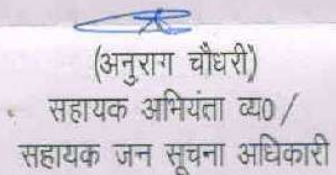 (अनुराग चौधरी)
सहायक अभियंता व्य0 /
सहायक जन सूचना अधिकारी